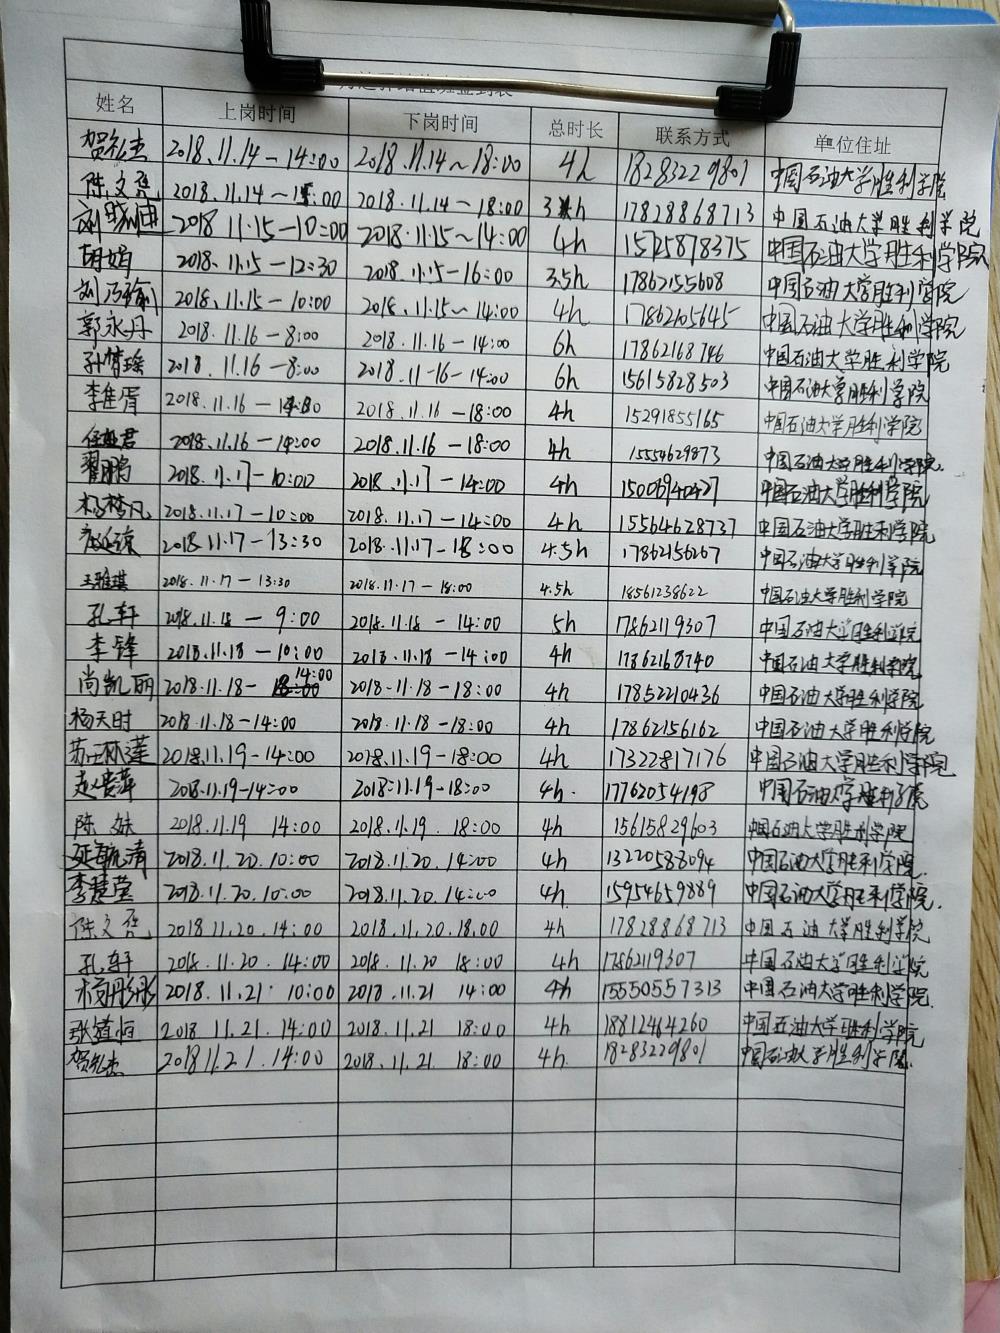 姓名 上岗时间 下岗时间 总时长 联系方式 单位住址
2018.11.14-14:00 2018.11.14~18:00 4h 18283229801 中国石油大学胜利学院
陈文 2018.11.14~15:00 2018.11.14-18:00 3h 17828868713 中国石油大学胜利学院
刘 2018 11.15-10:00 2018.11.15~14:00 4h 15725878375 中国石油大学胜利学院
胡娟 2018.11.15-12:30 2018.11.15-16:00 3.5h 17862155608 中国石油大学胜利学院
刘乃 2018.11.15-10:00 2018.11.15~14:00 4h 17862105645 中国石油大学胜利学院
郭永丹 2018.11.16-8:00 2018.11.16-14:00 6h 17862168746 中国石油大学胜利学院
孙情瑶 2018.11.16-8:00 2018.11-16-14:00 6h 15615828503 中国石油大学胜利学院
李佳霄 2018.11.16-14:00 2018.11.16-18:00 4h 15291855165 中国石油大学胜利学院
君 2018.11.16-14:00 2018.11.16-18:00 4h 15554629873 中国石油大学胜利学院.
翟鹏 2018.11.17-10:00 2018.11.17-14:00 4h 15006940427 中国石油大学胜利学院
杨梦凡 2018.11.17-10:00 2018.11.17-14:00 4h 15564628737 中国石油大学胜利学院
2018.11.17-13:30 2018.11.17-18:00 4.5h 17862156267 中国石油大学胜利学院
王雅琪 2018.11.17-13:30 2018.11.17-18:00 4.5h 18561238622 中国石油大学胜利学院
孔轩 2018.11.18-9:00 2018.11.18-14:00 5h 17862119307 中国石油大学胜利学院
李锋 2018.11.18-10:00 2018.11.18-14:00 4h 17862168740 中国石油大学胜利学院
尚凯丽 2018.11.18-14:00 2018.11.18-18:00 4h 17852210436 中国石油大学胜利学院
杨天时 2018.11.18-14:00 2018.11.18-18:00 4h 17862156162 中国石油大学胜利学院
苏 2018.11.19-14:00 2018.11.19-18:00 4h 17322817176 中国石油大学胜利学院
赵 萍 2018.11.19-14:00 2018.11.19-18:00 4h. 17762054198 中国石油大学胜利学院
陈妹 2018.11.19 14:00 2018.11.19.18:00 4h 15615829603 中国石油大学胜利学院
延毓清 2018.11.20.10:00 2018.11.20.14:00 4h 13220588094 中国石油大学胜利学院.
李慧莹 2018.11.20.10:00 2018.11.20.14:00 4h 15954659889 中国石油大学胜利学院.
陈文 2018 11.20.14:00 2018.11.20.18.00 4h 17828868713 中国石油大学胜利学院
孔轩 2018.11.20.14:00 2018.11.20 18:00 4h 17862119307 中国石油大学胜利学院
杨彤彤 2018.11.21.10:00 2018.11.21 14:00 4h 15550557313 中国石油大学胜利学院.
张道恒 2018.11.21.14:00 2018.11.21 18:00 4h 18812464260 中国石油大学胜利学院
2018 11.21.14:00 2018.11.21 18:00 4h. 18283229801 中国石油大学胜利学院.